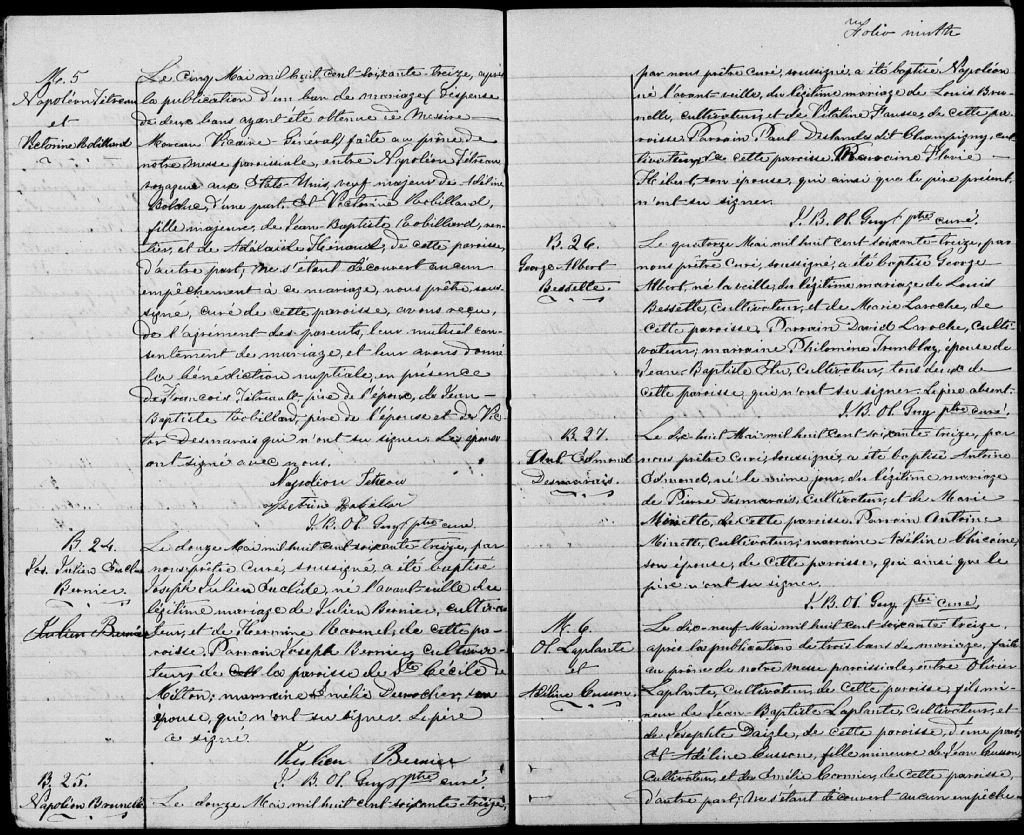 M. 5
Napoléon Tétreau
et
Victorine Robillard
Le cinq Mai mil huit cent soixante-treize, après
la publication d'un ban de mariage (dispense
de deux bans ayant été obtenue de Messire
Moreau Vicaire-Général) faite au prône de
notre Messe paroissiale, entre Napoléon Tétreau
voyageur aux Etats-Unis, veuf majeur de Adéline
Bolduc, d'une part, et Victorine Robillard,
fille majeure de Jean-Baptiste Robillard, ren-
tier, et de Adélaide Hénault, de cette paroisse,
d'autre part; ne s'étant découvert aucun
empêchement à ce mariage, nous prêtre, sous-
signé, curé de cette paroisse, avons reçu,
de l'agrément des parents, leur mutuel con-
sentement de mariage, et leur avons donné
la bénédiction nuptiale, en présence
de François Tétreault, père de l'époux, de Jean-
Baptiste Robillard, père de l'épouse et de Vic-
tor Desmarais qui n'ont su signer. Les époux
ont signé avec nous.
Napoléon Tetreau
J. B. Ol. Guy ptre curé.
B. 24.
Jos. Julien Euclide
Bernier.
Julien Bernier
Le douze Mai mil huit cent soixante-treize, par
nous prêtre Curé, soussigné, a été baptisé
Joseph Julien Euclide, né l'avant-veille du
légitime mariage de Julien Bernier, cultiva-
teur, et de Hermine Ravenel, de cette pa-
roisse. Parrain Joseph Bernier, cultiva-
teur, de la paroisse de Ste Cécile de
Milton; marraine Emélie Desrocher, son
épouse, qui n'ont su signer. Le père
a signé.
Julien Bernier
J. B. Ol. Guy ptre curé.
B. 25.
Napoléon Brunelle
Le douze Mai mil huit cent soixante-treize,
Folio
par nous prêtre curé, soussigné, a été baptisé Napoléon
né l'avant-veille, du légitime mariage de Louis Bru-
nelle, cultivateur, et de Vitaline Hausse, de cette pa-
roisse. Parrain Paul Deslandes dit Champigny, cul-
tivateur, de cette paroisse. Marraine Flavie
Hébert, son épouse, qui ainsi que le père présent,
n'ont su signer.
J. B. Ol. Guy ptre curé.
B. 26.
George Albert
Bessette.
Le quatorze Mai mil huit cent soixante-treize, par
nous prêtre Curé, soussigné, a été baptisé George
Albert, né la veille, du légitime mariage de Louis
Bessette, Cultivateur, et de Marie Laroche, de
cette paroisse. Parrain David Laroche, Culti-
vateur; marraine Philomène Tremblay, épouse de
Jean-Baptiste Cultivateur, tous deux de
cette paroisse, qui n'ont su signer. Le père absent.
J. B. Ol. Guy ptre curé.
B. 27.
Ant. Edmond
Desmarais.
Le dix-huit Mai mil huit cent soixante-treize, par
nous prêtre Curé, soussigné, a été baptisé Antoine
Edmond, né le même jour, du légitime mariage
de Pierre Desmarais, Cultivateur, et de Marie
Minette, de cette paroisse. Parrain Antoine
Minette, Cultivateur; marraine Adéline Chicoine,
son épouse, de cette paroisse, qui ainsi que le
père n'ont su signer.
J. B. Ol. Guy ptre curé.
M. 6.
Ol. Laplante
et
Adéline Cusson.
Le dix-neuf Mai mil huit cent soixante-treize,
après la publication de trois bans de mariage, faite
au prône de notre messe paroissiale, entre Olivier
Laplante, cultivateur, de cette paroisse, fils mi-
neur de Jean-Baptiste Laplante, cultivateur, et
de Josephte Daigle, de cette paroisse, d'une part,
et Adéline Cusson, fille mineure de Jean Cusson,
Cultivateur, et de Emélie Cormier, de cette paroisse,
d'autre part; ne s'étant découvert aucun empêche-